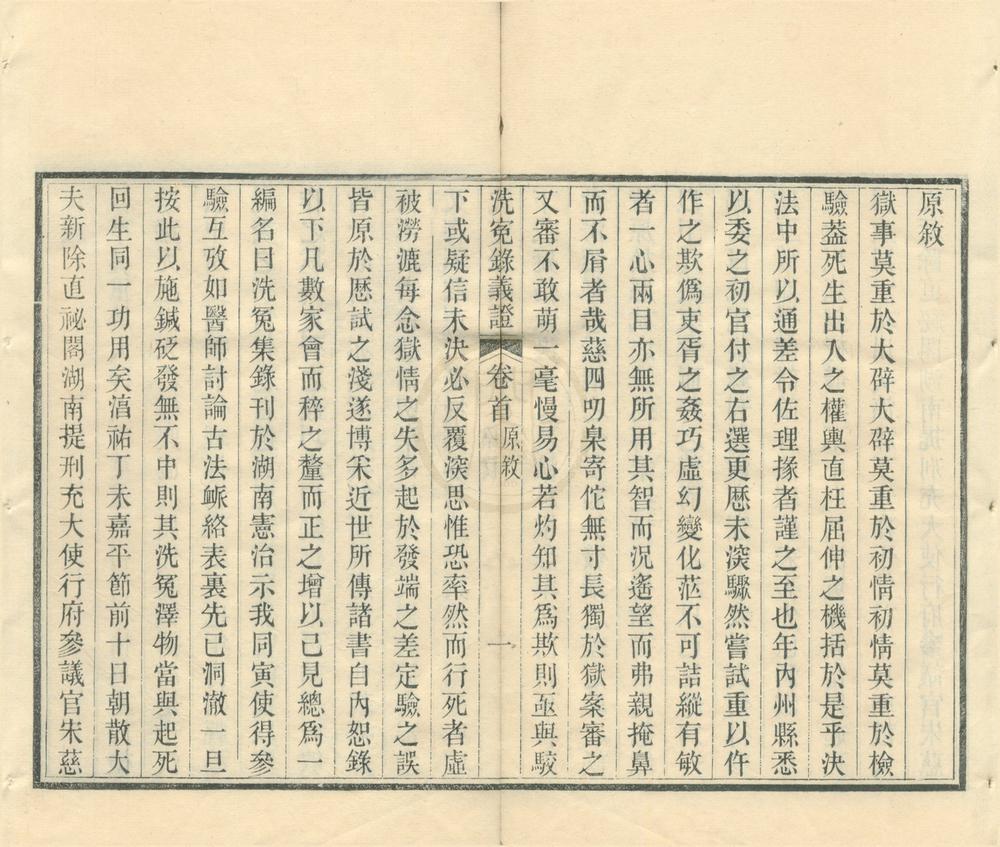 原敘
獄事莫重於大辟大辟莫重於初情初情莫重於檢
驗葢死生出入之權輿直枉屈伸之機括於是乎決
法中所以通差令佐理掾者謹之至也年內州縣悉
以委之初官付之右選更厯未㴱驟然嘗試重以仵
作之欺僞吏胥之姦巧虛幻變化茫不可詰縱有敏
者一心兩目亦無所用其智而況遙望而弗親掩鼻
而不屑者哉慈四叨臬寄佗無寸長獨於獄案審之
又審不敢萌一毫慢易心若灼知其爲欺則亟與駮
洗冤錄義證 卷首 原敘 一
下或疑信未決必反覆㴱思惟恐率然而行死者虛
被澇漉每念獄情之失多起於發端之差定驗之誤
皆原於厯試之淺遂博采近世所傳諸書自內恕錄
以下凡數家會而稡之釐而正之增以己見總爲一
編名曰洗冤集錄刊於湖南憲治示我同寅使得參
驗互攷如醫師討論古法衇絡表裏先已洞澈一旦
按此以施鍼砭發無不中則其洗冤澤物當與起死
回生同一功用矣湻祐丁未嘉平節前十日朝散大
夫新除直祕閣湖南提刑充大使行府參議官宋慈